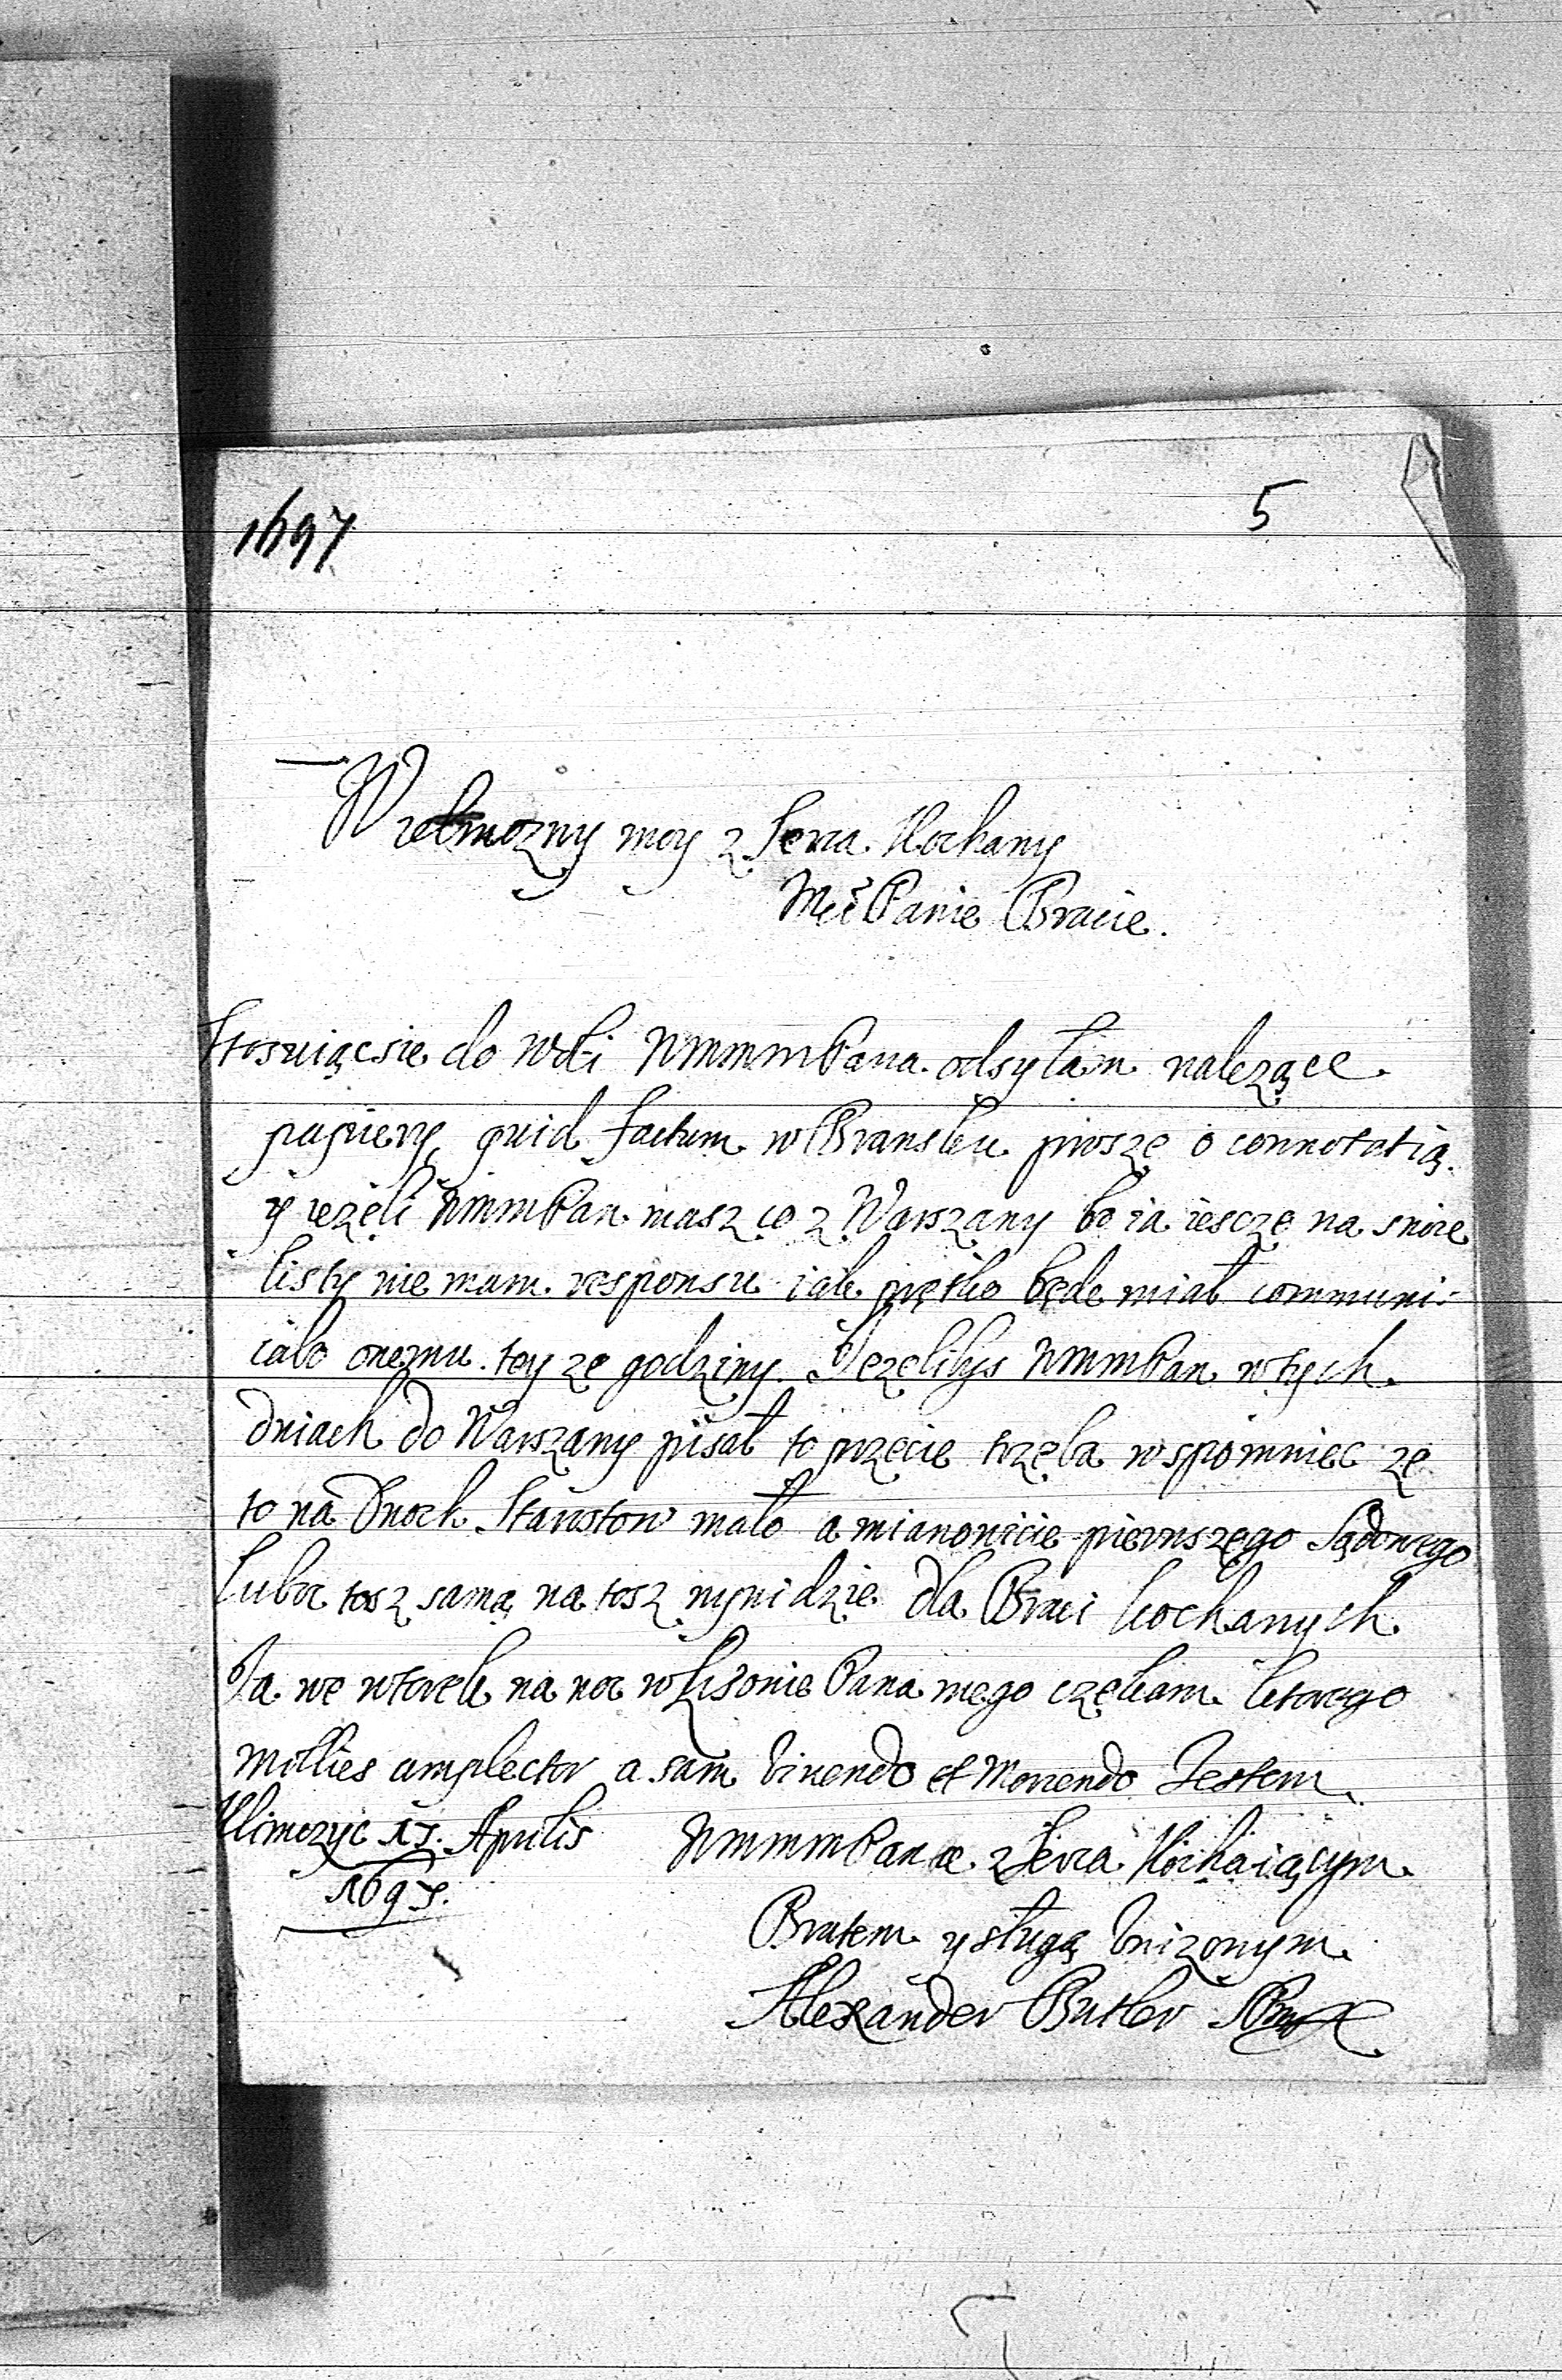 1697
5
Wielmozny moy z Serca Kochany
Mći Panie Bracie.
Stosuiąc sie do Woli WMMMPana odsyłam nalezące
papiery, quid factum w Bransku prosze o connotatią
y iezeli WMMPan masz co z Warszawy bo ia iescze na swoie
listy nie mam responsu iak prętko będe miał communi-
cabo onemu tey ze godziny. Jezelibys WMMPan w tych
dniach do Warszawy pisał to przecie trzeba wspomniec ze
to na Dwoch Starostow mało a mianowicie pierwszego Sądowego
Lubo tosz samą na tosz wynidzie dla Braci kochanych
Ja we wtorek na noc w Pana mego czekam ktorego
Millies amplector a sam Vivendo et Moriendo Jestem
Klimczyc 17. Aprilis WMMMPana z Serca Kochaiącym
1697.
Bratem y sługą Unizonym
Alexander Butler